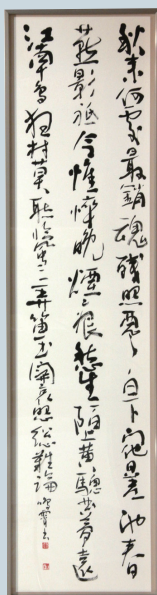 秋來何處最銷魂殘照西風白下門他日差池春
燕影祗今憔悴晚煙痕愁生陌上黃驄曲夢遠
江南烏夜村莫聽臨風三弄笛玉關哀怨總難論